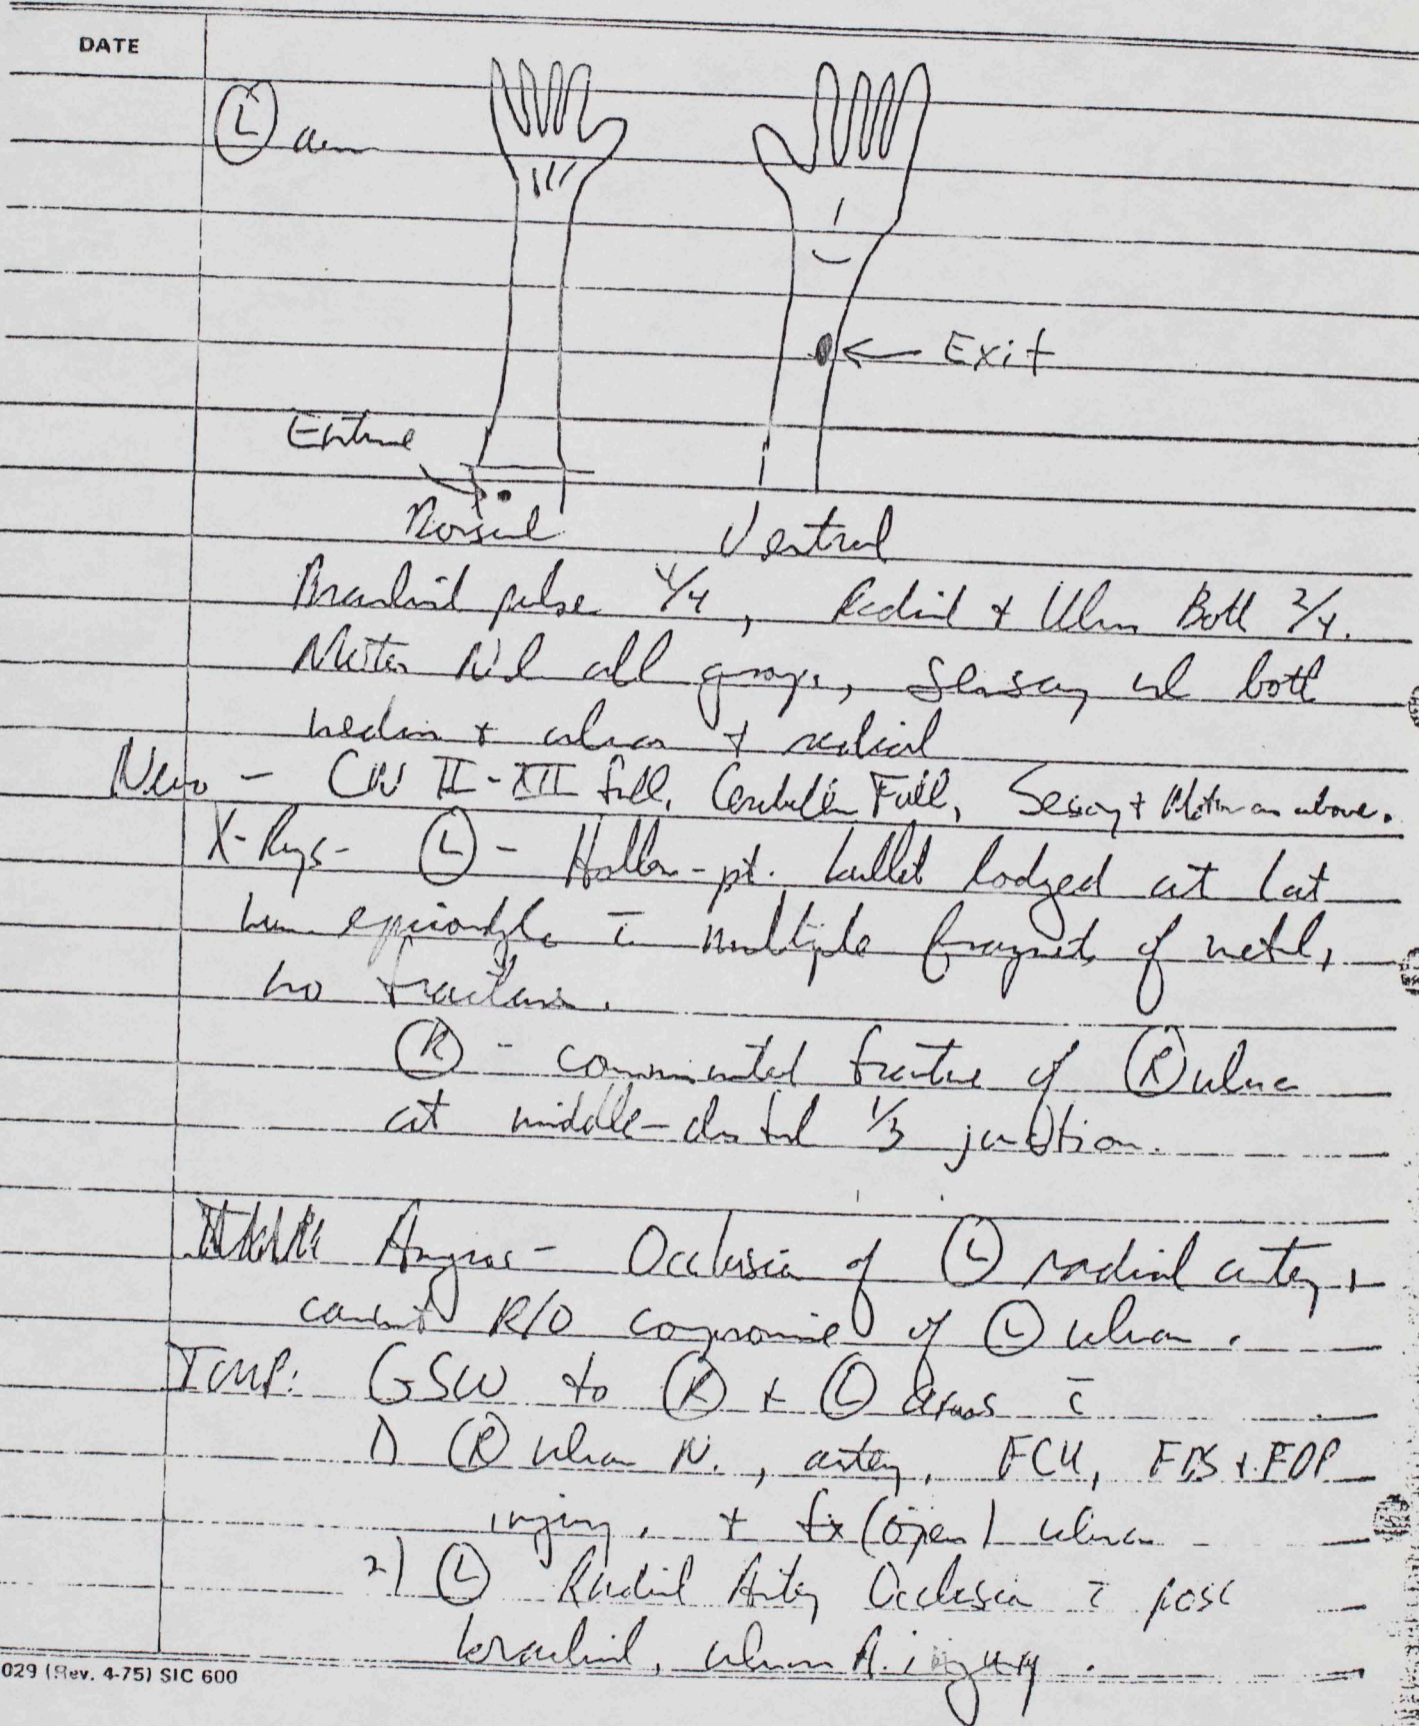 DATE
(L) arm
← Exit
Entrance
Dorsal Ventral
Brachial pulse 4/4, Radial + Ulnar Both 2/4.
Motor Nl all groups, Sensory nl both
median + ulnar + radial
Neuro - CN II-XII full, Cerebellar Full, Sensory + Motor as above.
X-Rays- (L) - Hollow-pt. bullet lodged at lat
hum epicondyle c̄ multiple fragments of metal,
no fracture.
(R) - comminuted fracture of (R) ulna
at middle-distal 1/3 junction.
Angios- Occlusion of (L) radial artery,
cannot R/O compromise of (L) ulnar.
IMP: GSW to (R) + (L) arms c̄
1) (R) ulnar N., artery, FCU, FDS + FDP
injury, + fx (open) ulna
2) (L) Radial Artery Occlusion c̄ poss
brachial, ulnar A. injury.
029 (Rev. 4-75) SIC 600